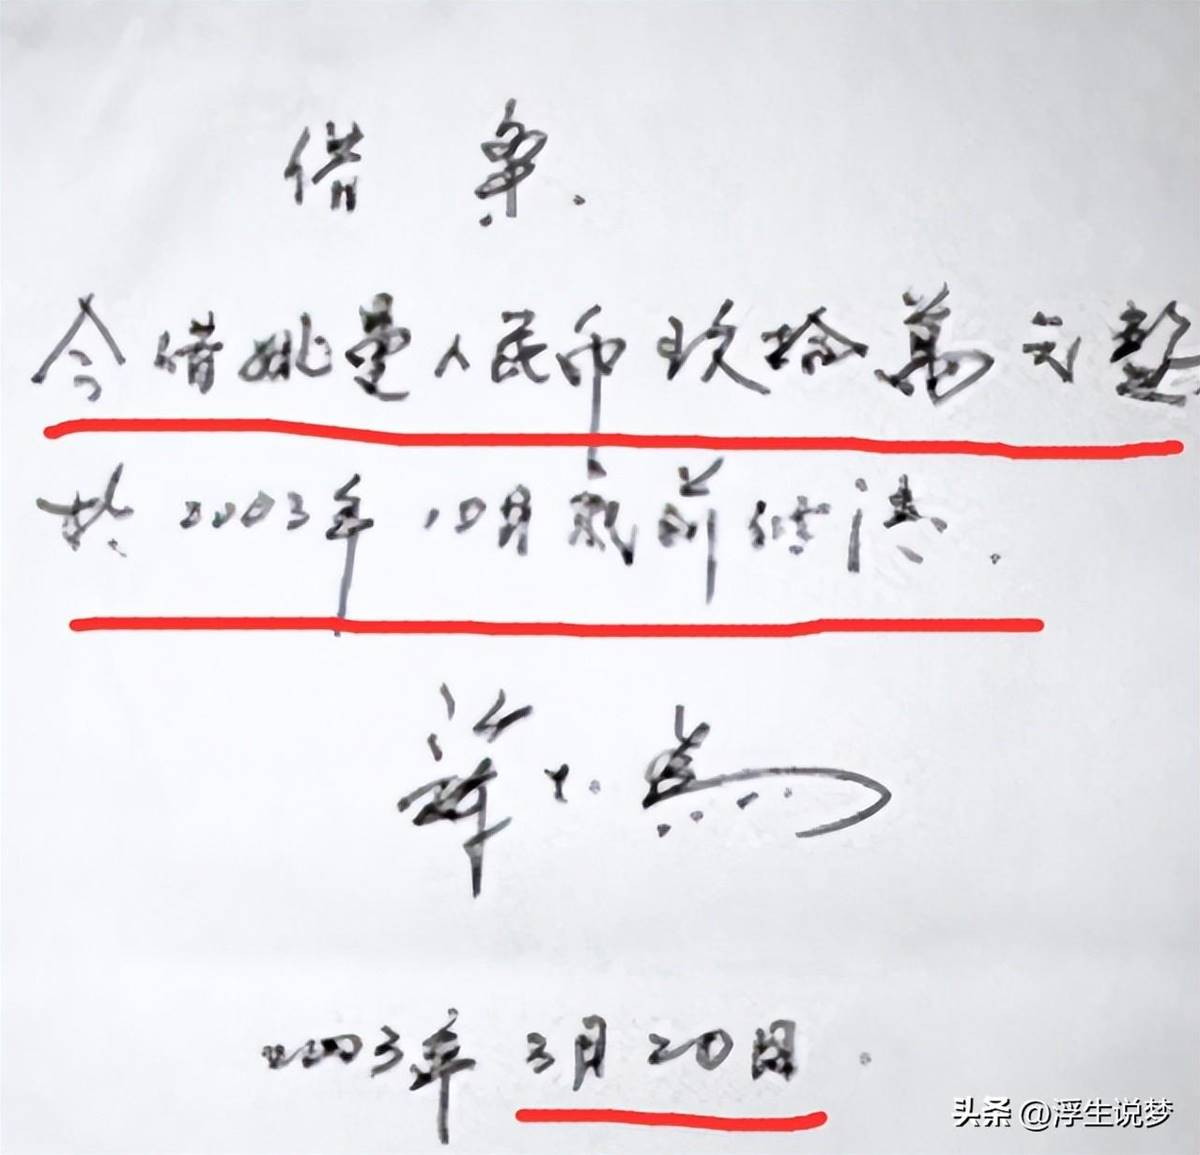 借条.
今借姚曼人民币玖拾萬元整
於2003年10月底前结清.
2003年3月20日.
头条 @浮生说梦